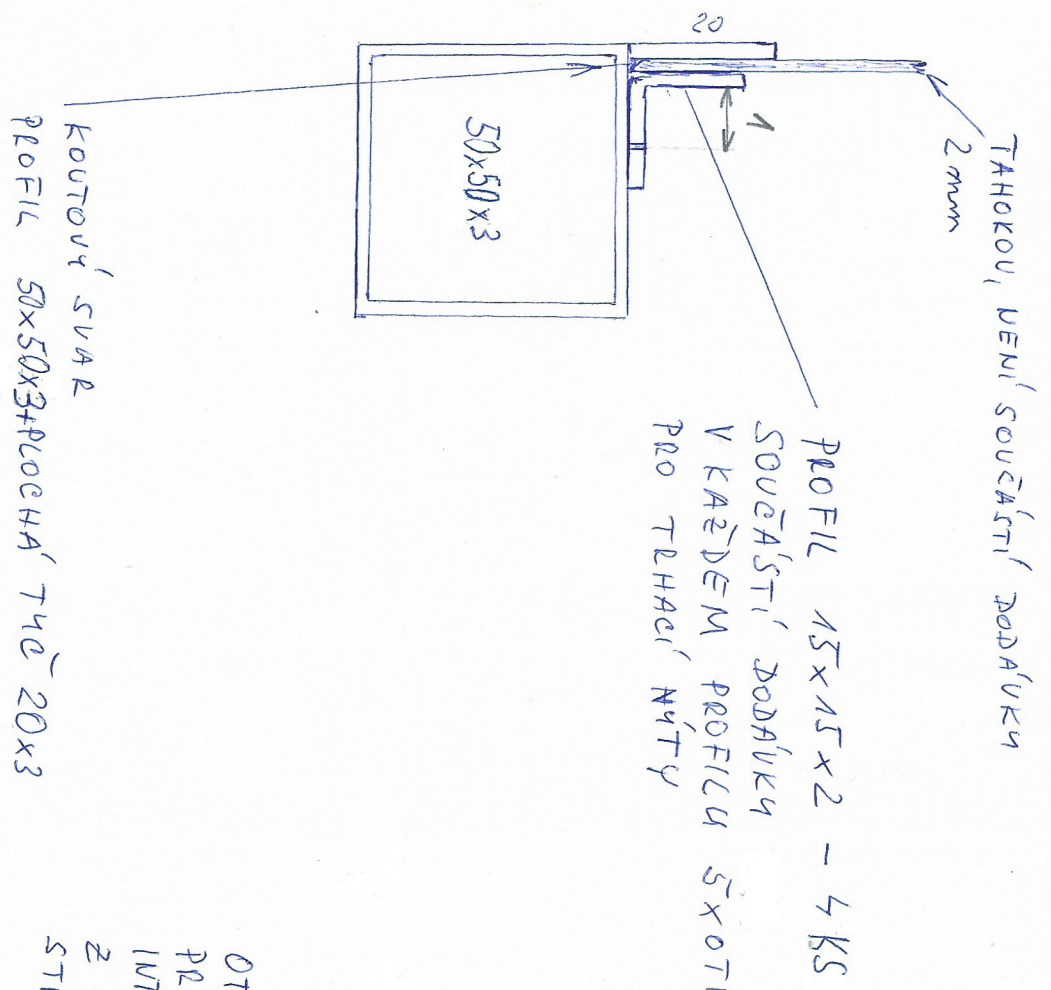 20
TAHOKOV, NENÍ SOUČÁSTÍ DODÁVKY
2 mm
1
50x50x3
PROFIL 15x15x2 - 4KS
SOUČÁSTÍ DODÁVKY
V KAŽDEM PROFILU 5x OT
PRO TRHACÍ NÝTY
KOUTOVÝ SVAR
PROFIL 50x50x3+PLOCHÁ TYČ 20x3
OT
PR
INT
Z
STI